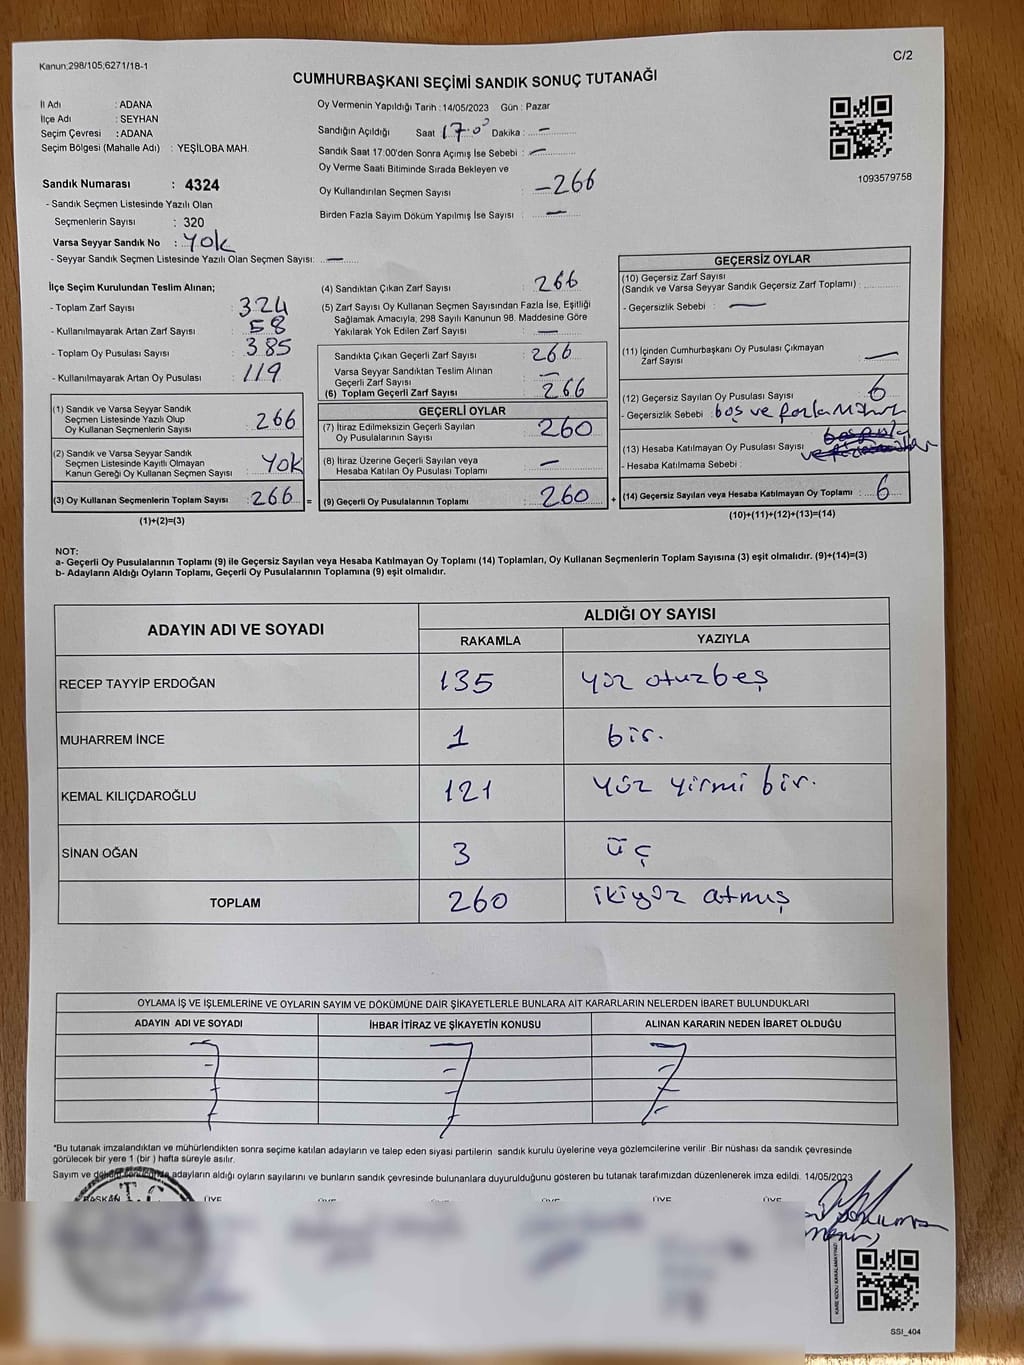 Kanun;298/105;6271/18-1
C/2
CUMHURBAŞKANI SEÇİMİ SANDIK SONUÇ TUTANAĞI
İl Adı : ADANA
İlçe Adı : SEYHAN
Seçim Çevresi : ADANA
Seçim Bölgesi (Mahalle Adı) : YEŞİLOBA MAH.
Sandık Numarası : 4324
- Sandık Seçmen Listesinde Yazılı Olan
Seçmenlerin Sayısı : 320
Varsa Seyyar Sandık No : Yok
- Seyyar Sandık Seçmen Listesinde Yazılı Olan Seçmen Sayısı: —
Oy Vermenin Yapıldığı Tarih : 14/05/2023 Gün : Pazar
Sandığın Açıldığı Saat 17.00 Dakika : —
Sandık Saat 17:00'den Sonra Açımış İse Sebebi : —
Oy Verme Saati Bitiminde Sırada Bekleyen ve
Oy Kullandırılan Seçmen Sayısı : —266
Birden Fazla Sayım Döküm Yapılmış İse Sayısı : —
1093579758
İlçe Seçim Kurulundan Teslim Alınan;
- Toplam Zarf Sayısı : 324
- Kullanılmayarak Artan Zarf Sayısı : 58
- Toplam Oy Pusulası Sayısı : 385
- Kullanılmayarak Artan Oy Pusulası : 119
(1) Sandık ve Varsa Seyyar Sandık
Seçmen Listesinde Yazılı Olup
Oy Kullanan Seçmenlerin Sayısı : 266
(2) Sandık ve Varsa Seyyar Sandık
Seçmen Listesinde Kayıtlı Olmayan
Kanun Gereği Oy Kullanan Seçmen Sayısı : Yok
(3) Oy Kullanan Seçmenlerin Toplam Sayısı : 266 =
(1)+(2)=(3)
(4) Sandıktan Çıkan Zarf Sayısı : 266
(5) Zarf Sayısı Oy Kullanan Seçmen Sayısından Fazla İse, Eşitliği
Sağlamak Amacıyla, 298 Sayılı Kanunun 98. Maddesine Göre
Yakılarak Yok Edilen Zarf Sayısı : —
Sandıkta Çıkan Geçerli Zarf Sayısı : 266
Varsa Seyyar Sandıktan Teslim Alınan
Geçerli Zarf Sayısı : —
(6) Toplam Geçerli Zarf Sayısı : 266
GEÇERLİ OYLAR
(7) İtiraz Edilmeksizin Geçerli Sayılan
Oy Pusulalarının Sayısı : 260
(8) İtiraz Üzerine Geçerli Sayılan veya
Hesaba Katılan Oy Pusulası Toplamı : —
(9) Geçerli Oy Pusulalarının Toplamı : 260 +
GEÇERSİZ OYLAR
(10) Geçersiz Zarf Sayısı
(Sandık ve Varsa Seyyar Sandık Geçersiz Zarf Toplamı) :
- Geçersizlik Sebebi : —
(11) İçinden Cumhurbaşkanı Oy Pusulası Çıkmayan
Zarf Sayısı : —
(12) Geçersiz Sayılan Oy Pusulası Sayısı : 6
- Geçersizlik Sebebi : boş ve fazla Mühür
(13) Hesaba Katılmayan Oy Pusulası Sayısı
- Hesaba Katılmama Sebebi :
(14) Geçersiz Sayılan veya Hesaba Katılmayan Oy Toplamı : 6
(10)+(11)+(12)+(13)=(14)
NOT:
a- Geçerli Oy Pusulalarının Toplamı (9) ile Geçersiz Sayılan veya Hesaba Katılmayan Oy Toplamı (14) Toplamları, Oy Kullanan Seçmenlerin Toplam Sayısına (3) eşit olmalıdır. (9)+(14)=(3)
b- Adayların Aldığı Oyların Toplamı, Geçerli Oy Pusulalarının Toplamına (9) eşit olmalıdır.
ADAYIN ADI VE SOYADI ALDIĞI OY SAYISI
RAKAMLA YAZIYLA
RECEP TAYYİP ERDOĞAN 135 yüz otuzbeş
MUHARREM İNCE 1 bir.
KEMAL KILIÇDAROĞLU 121 yüz yirmi bir.
SİNAN OĞAN 3 üç
TOPLAM 260 ikiyüz atmış
OYLAMA İŞ VE İŞLEMLERİNE VE OYLARIN SAYIM VE DÖKÜMÜNE DAİR ŞİKAYETLERLE BUNLARA AİT KARARLARIN NELERDEN İBARET BULUNDUKLARI
ADAYIN ADI VE SOYADI İHBAR İTİRAZ VE ŞİKAYETİN KONUSU ALINAN KARARIN NEDEN İBARET OLDUĞU
*Bu tutanak imzalandıktan ve mühürlendikten sonra seçime katılan adayların ve talep eden siyasi partilerin sandık kurulu üyelerine veya gözlemcilerine verilir. Bir nüshası da sandık çevresinde
görülecek bir yere 1 (bir ) hafta süreyle asılır.
Sayım ve döküm sonucunda adayların aldığı oyların sayılarını ve bunların sandık çevresinde bulunanlara duyurulduğunu gösteren bu tutanak tarafımızdan düzenlenerek imza edildi. 14/05/2023
T.C
BAŞKAN ÜYE ÜYE ÜYE ÜYE ÜYE ÜYE
KARE KODU KARALAMAYINIZ!
SSI_404